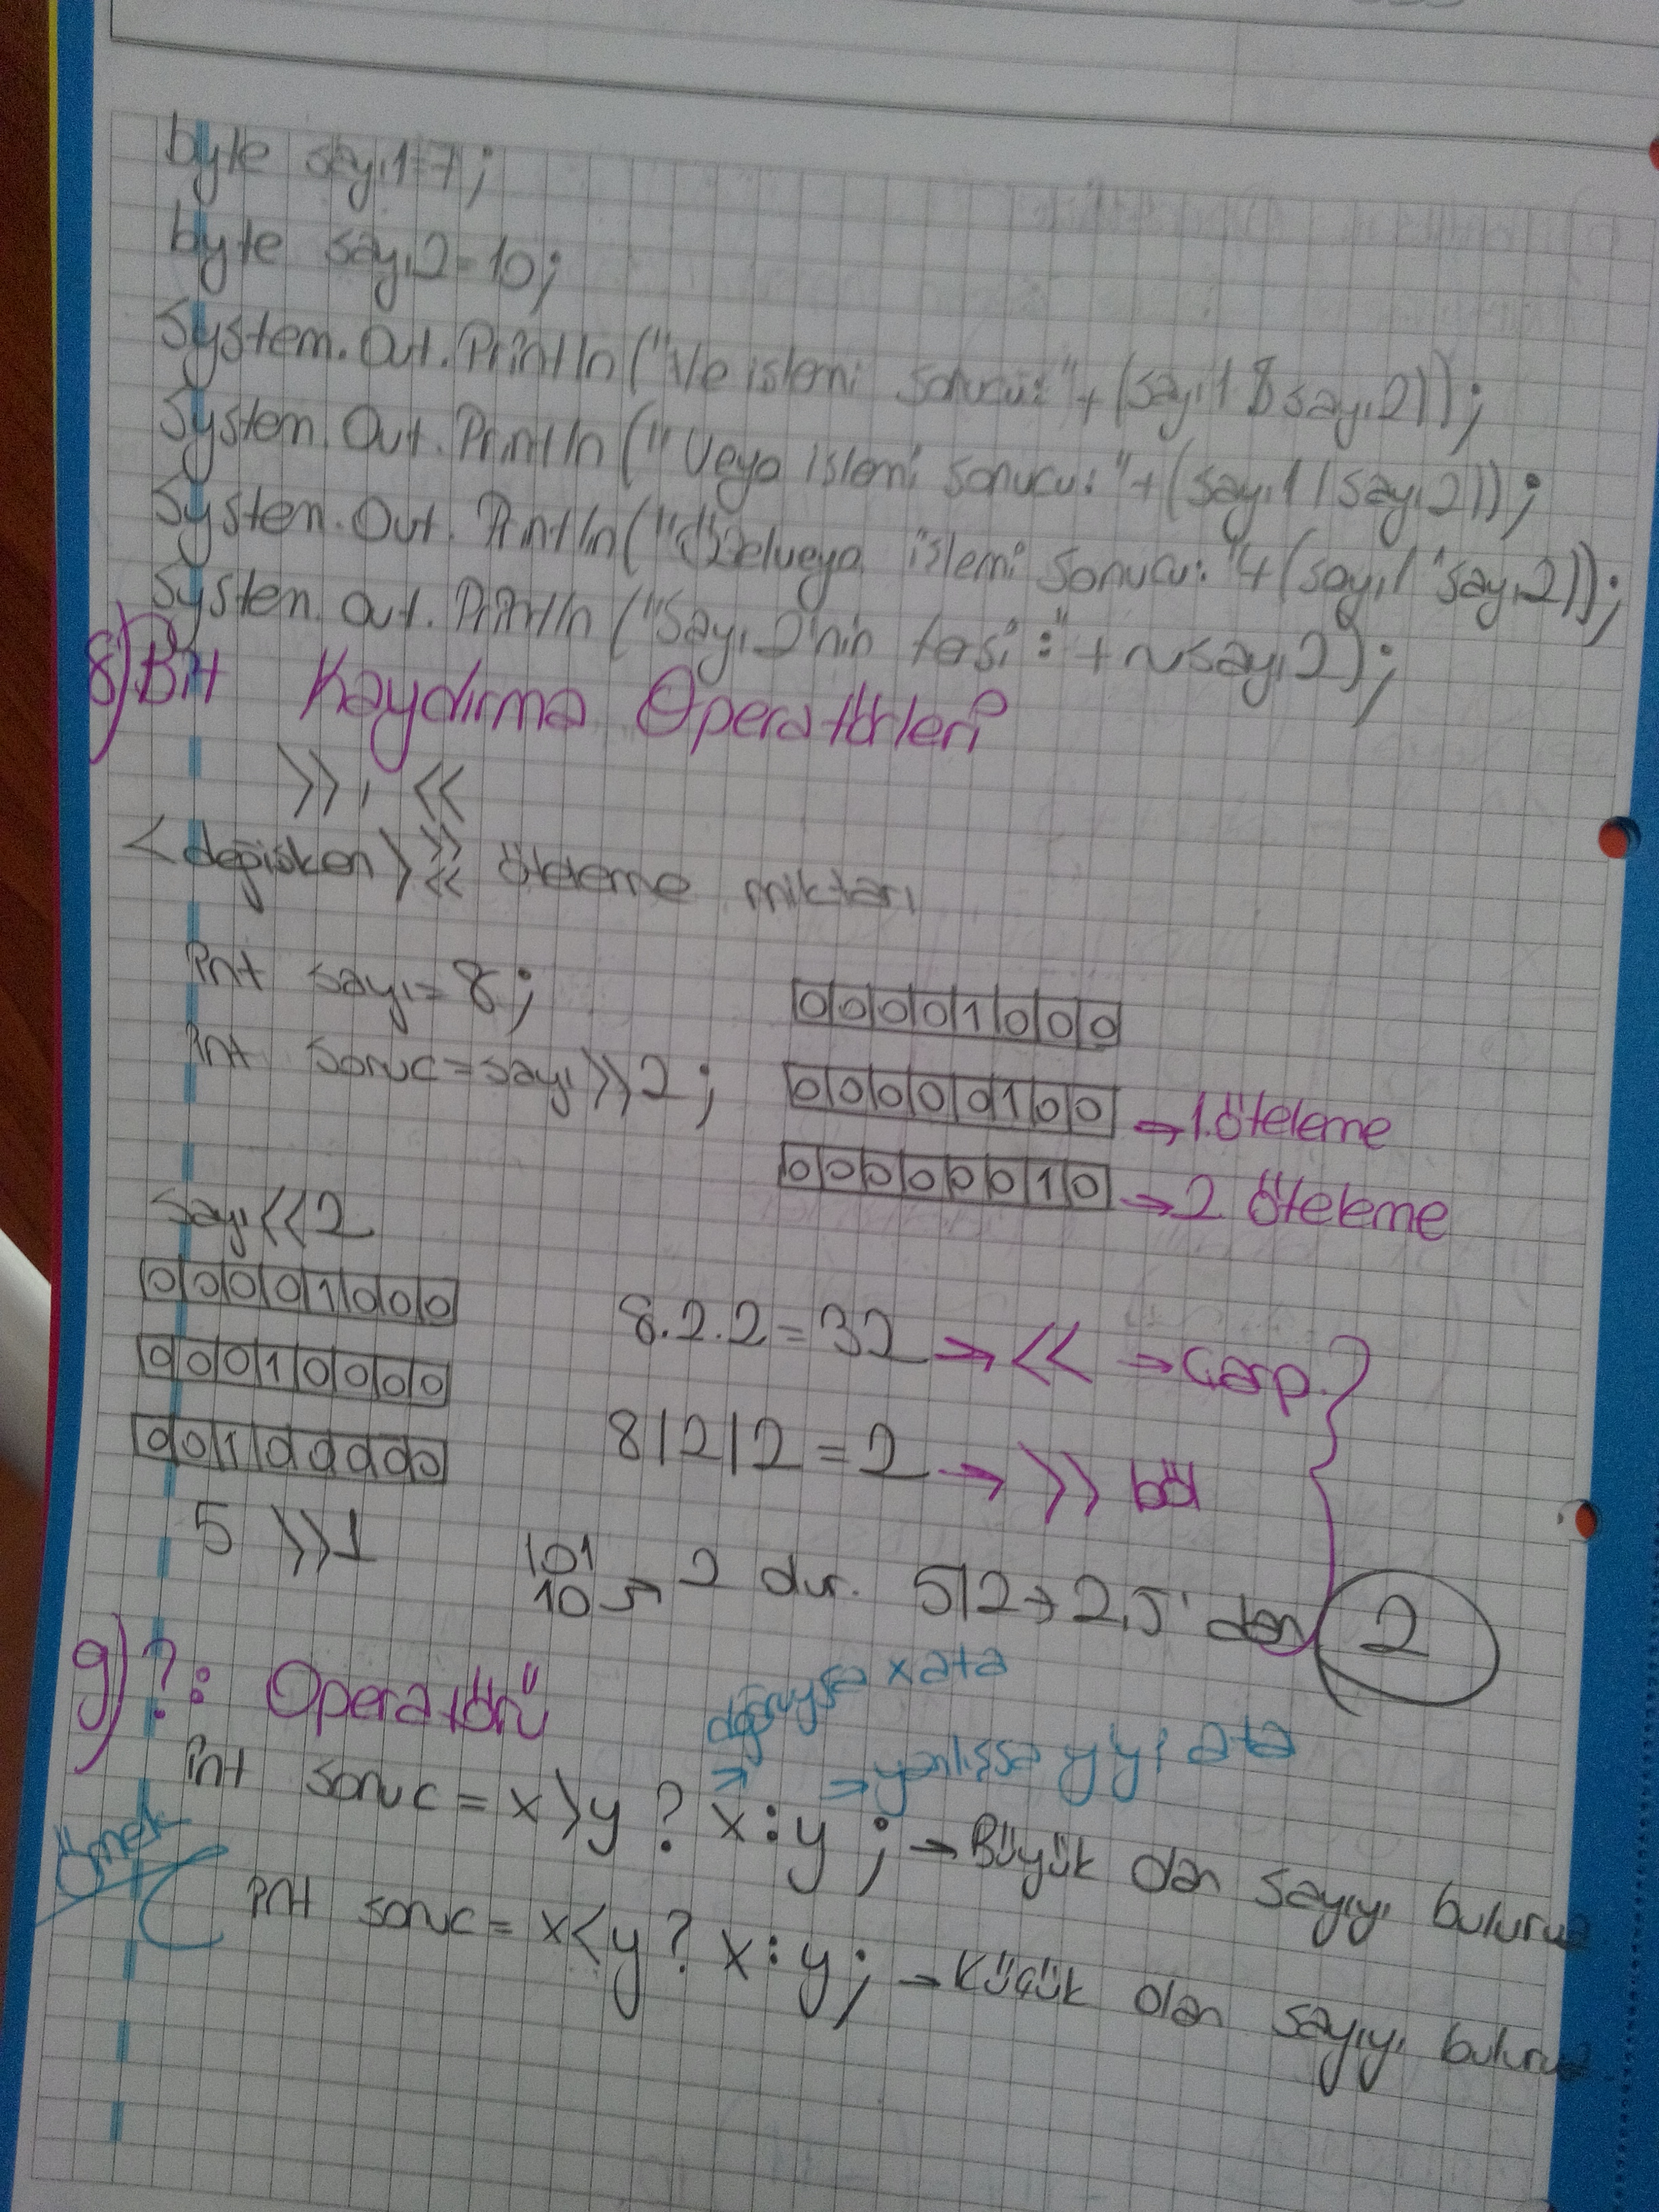 byte sayı1=7;
byte sayı2=10;
System.Out.Println("Ve islemi sonucu:"+(sayı1 & sayı2));
System.Out.Println("Veya islemi sonucu:"+(sayı1 | sayı2));
System.Out.Println("Özelveya islemi sonucu:"+(sayı1 ^ sayı2));
System.out.Println("Sayı2'nin tersi:"+~sayı2);
8) Bit Kaydırma Operatörleri
>>, <<
<değisken> >> << öteleme miktarı
int sayı=8;
00001000
int sonuc=sayı>>2;
00000100 → 1.öteleme
00000010 → 2 öteleme
sayı<<2
00001000
8.2.2=32 → << → Çarp.
00010000
8/2/2=2 → >> böl
00100000
5 >>1
101
10 → 2 dır. 5/2→2,5'dan 2
9) ?: Operatörü
doğruysa x ata
→ yanlışsa y yi ata
int sonuc = x>y ? x:y; → Büyük olan sayıyı buluruz
Örnek
int sonuc = x<y ? x:y; → Küçük olan sayıyı buluruz